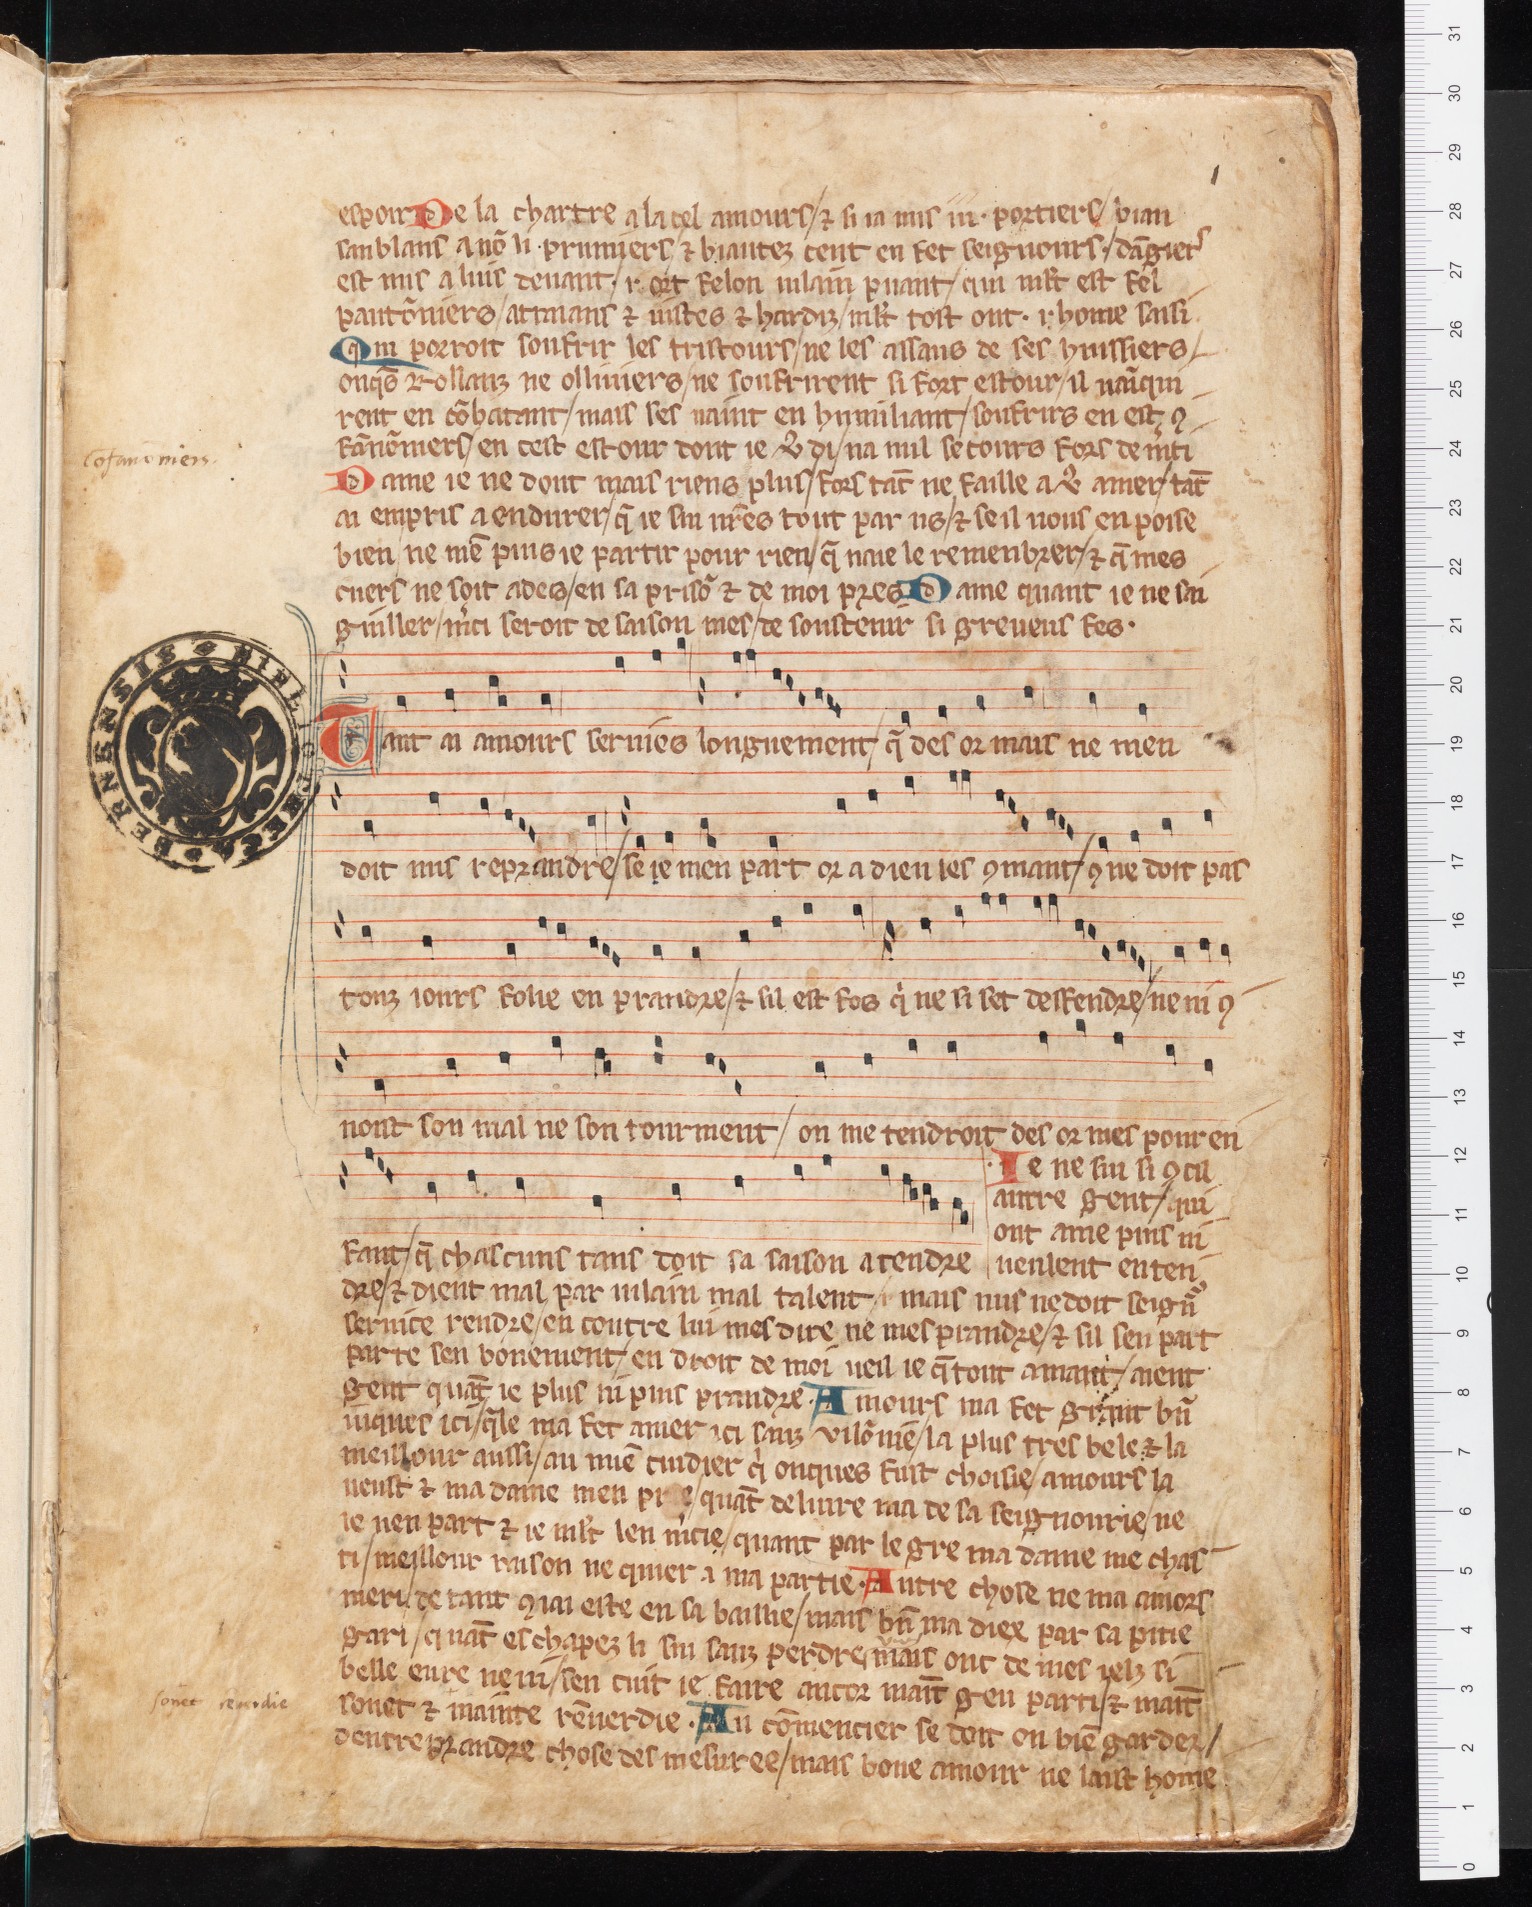 1
espoir De la chartre a la cel amours / ⁊ si ia mis iii. portiers / biau
sanblans a nō li prumiers / ⁊ biautez cent en fet seignours / dāgiers
est mis a luis deuant / i ort felon uilain puant / qui mlt est fel
pautōniers / attinans ⁊ uistes ⁊ hardiz / mlt tost ont i home saisi
Qui porroit soufrir les tristours / ne les assaus de ses huissiers /
onqs Rollanz ne olliuiers / ne soufrirent si fort estour / il uāqui
rent en cōbatant / mais ses uaint en humiliant / soufrirs en est ꝯ
fanōniers / en cest estour dont ie v9 di / na nul secours fors de mci
cofanōniers.
Dame ie ne dout mais riens plus / fors tāt ne faille a v9 amer / tāt
ai empris a endurer / q̄ ie sui urēs tout par us / ⁊ se il uous en poise
bien / ne mē puis ie partir pour rien / q̄ naie le remenbrer / ⁊ q̄ mes
cuers ne soit ades / en sa prisō ⁊ de moi pres Dame quant ie ne sai
guiller / mci seroit de saison mes / de soustenir si greueus fes.
BERNENSIS BIBLIOTHECA
Tant ai amours seruies longuement / q̄ des or mais ne men
doit nus reprandre / se ie men part or a dieu les ꝯmant / ꝯ ne doit pas
touz iours folie en prandre / ⁊ sil est fos qi ne si set desfendre / ne ni ꝯ
noist son mal ne son tourment / on me tendroit des or mes pour en
fant / q̄ chascuns tans doit sa saison atendre
Ie ne sui si ꝯ cil
autre gent / qui
ont ame puis ni
ueulent enten
dre / ⁊ dient mal par uilain mal talent / mais nus ne doit seign̄
seruice rendre / en coutre lui mesdire ne mesprandre / ⁊ sil sen part
parte sen bonement / en droit de moi ueil ie q̄ tout amant / aient
gent quāt ie plus ni puis prandre. Amours ma fet graut bn̄
iuques ici / qle ma fet amer ici sanz vilōnie / la plus tres bele ⁊ la
meillour aussi / au miē cuidier qi onques fust choisie / amours la
ueust ⁊ ma dame men prie / quāt deliure ma de sa seignourie / ne
ie uen part ⁊ ie mlt len mcie / quant par le gre ma dame me chas
ti / meillour raison ne quier a ma partie. Autre chose ne ma amors
meri / de tant ꝯ iai este en sa baillie / mais bn̄ ma diex par sa pitie
gari / quāt eschapez li sui sanz perdre / mais ont de mes ielz si
belle eure ne ui / sen cuit ie faire ancor maīt geu parti / ⁊ maīt
sonet ⁊ mainte rēuerdie. Au cōmencier se doit on biē garder /
sonet reuerdie
dentreprandre chose desmesuree / mais bone amour ne laist home